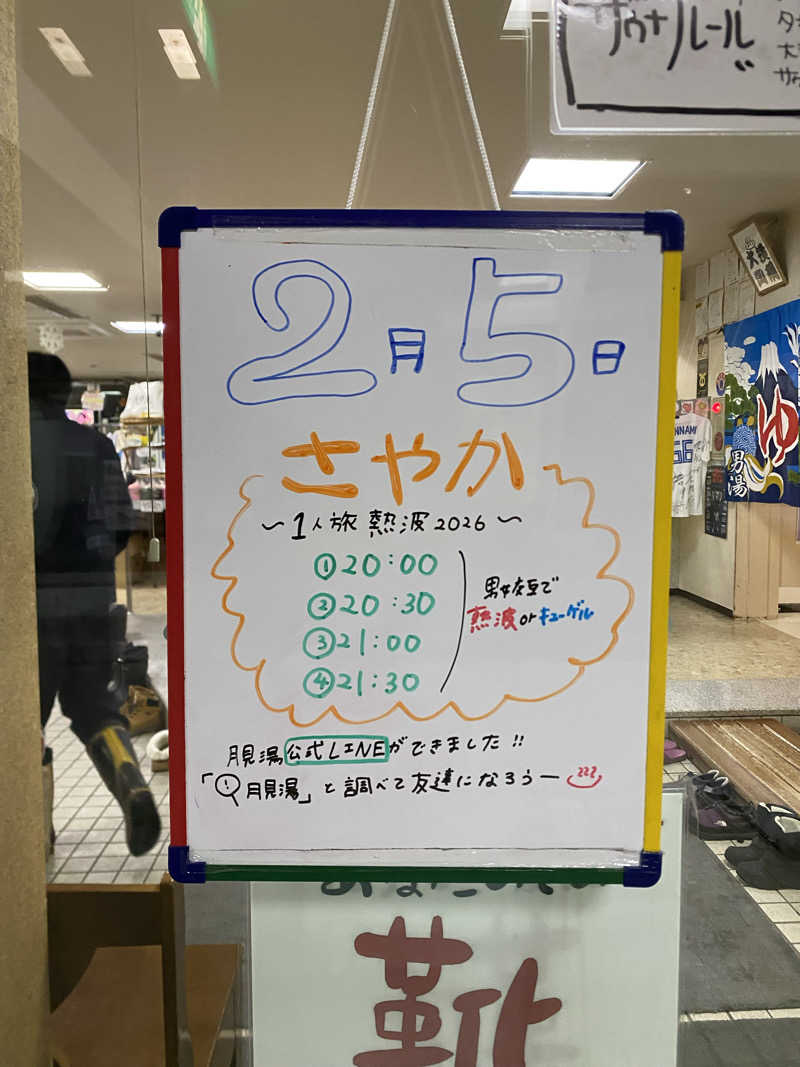 サウナルール
2月5日
さやか
~1人旅 熱波2026~
①20:00
②20:30
③21:00
④21:30
男女交互で
熱波orキューゲル
月見湯公式LINEができました!!
「月見湯」と調べて友達になろうー
ゆ
男湯
56
靴